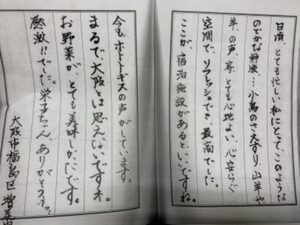 日頃、とても忙しい私にとて、このような
のどかな静寂…小鳥のさえずり、山羊や
羊の声、等、とても心地よい、心安らぐ
空間で、リフレッシュでき、最高でした。
ここが、宿泊施設があると、いいですね。
今も、ホトトギスの声がしています。
まるで、大阪とは思えないですネ。
お野菜が、とても美味しかたです。
感激!!でした。ちゃん、ありがとう
大阪市福島区